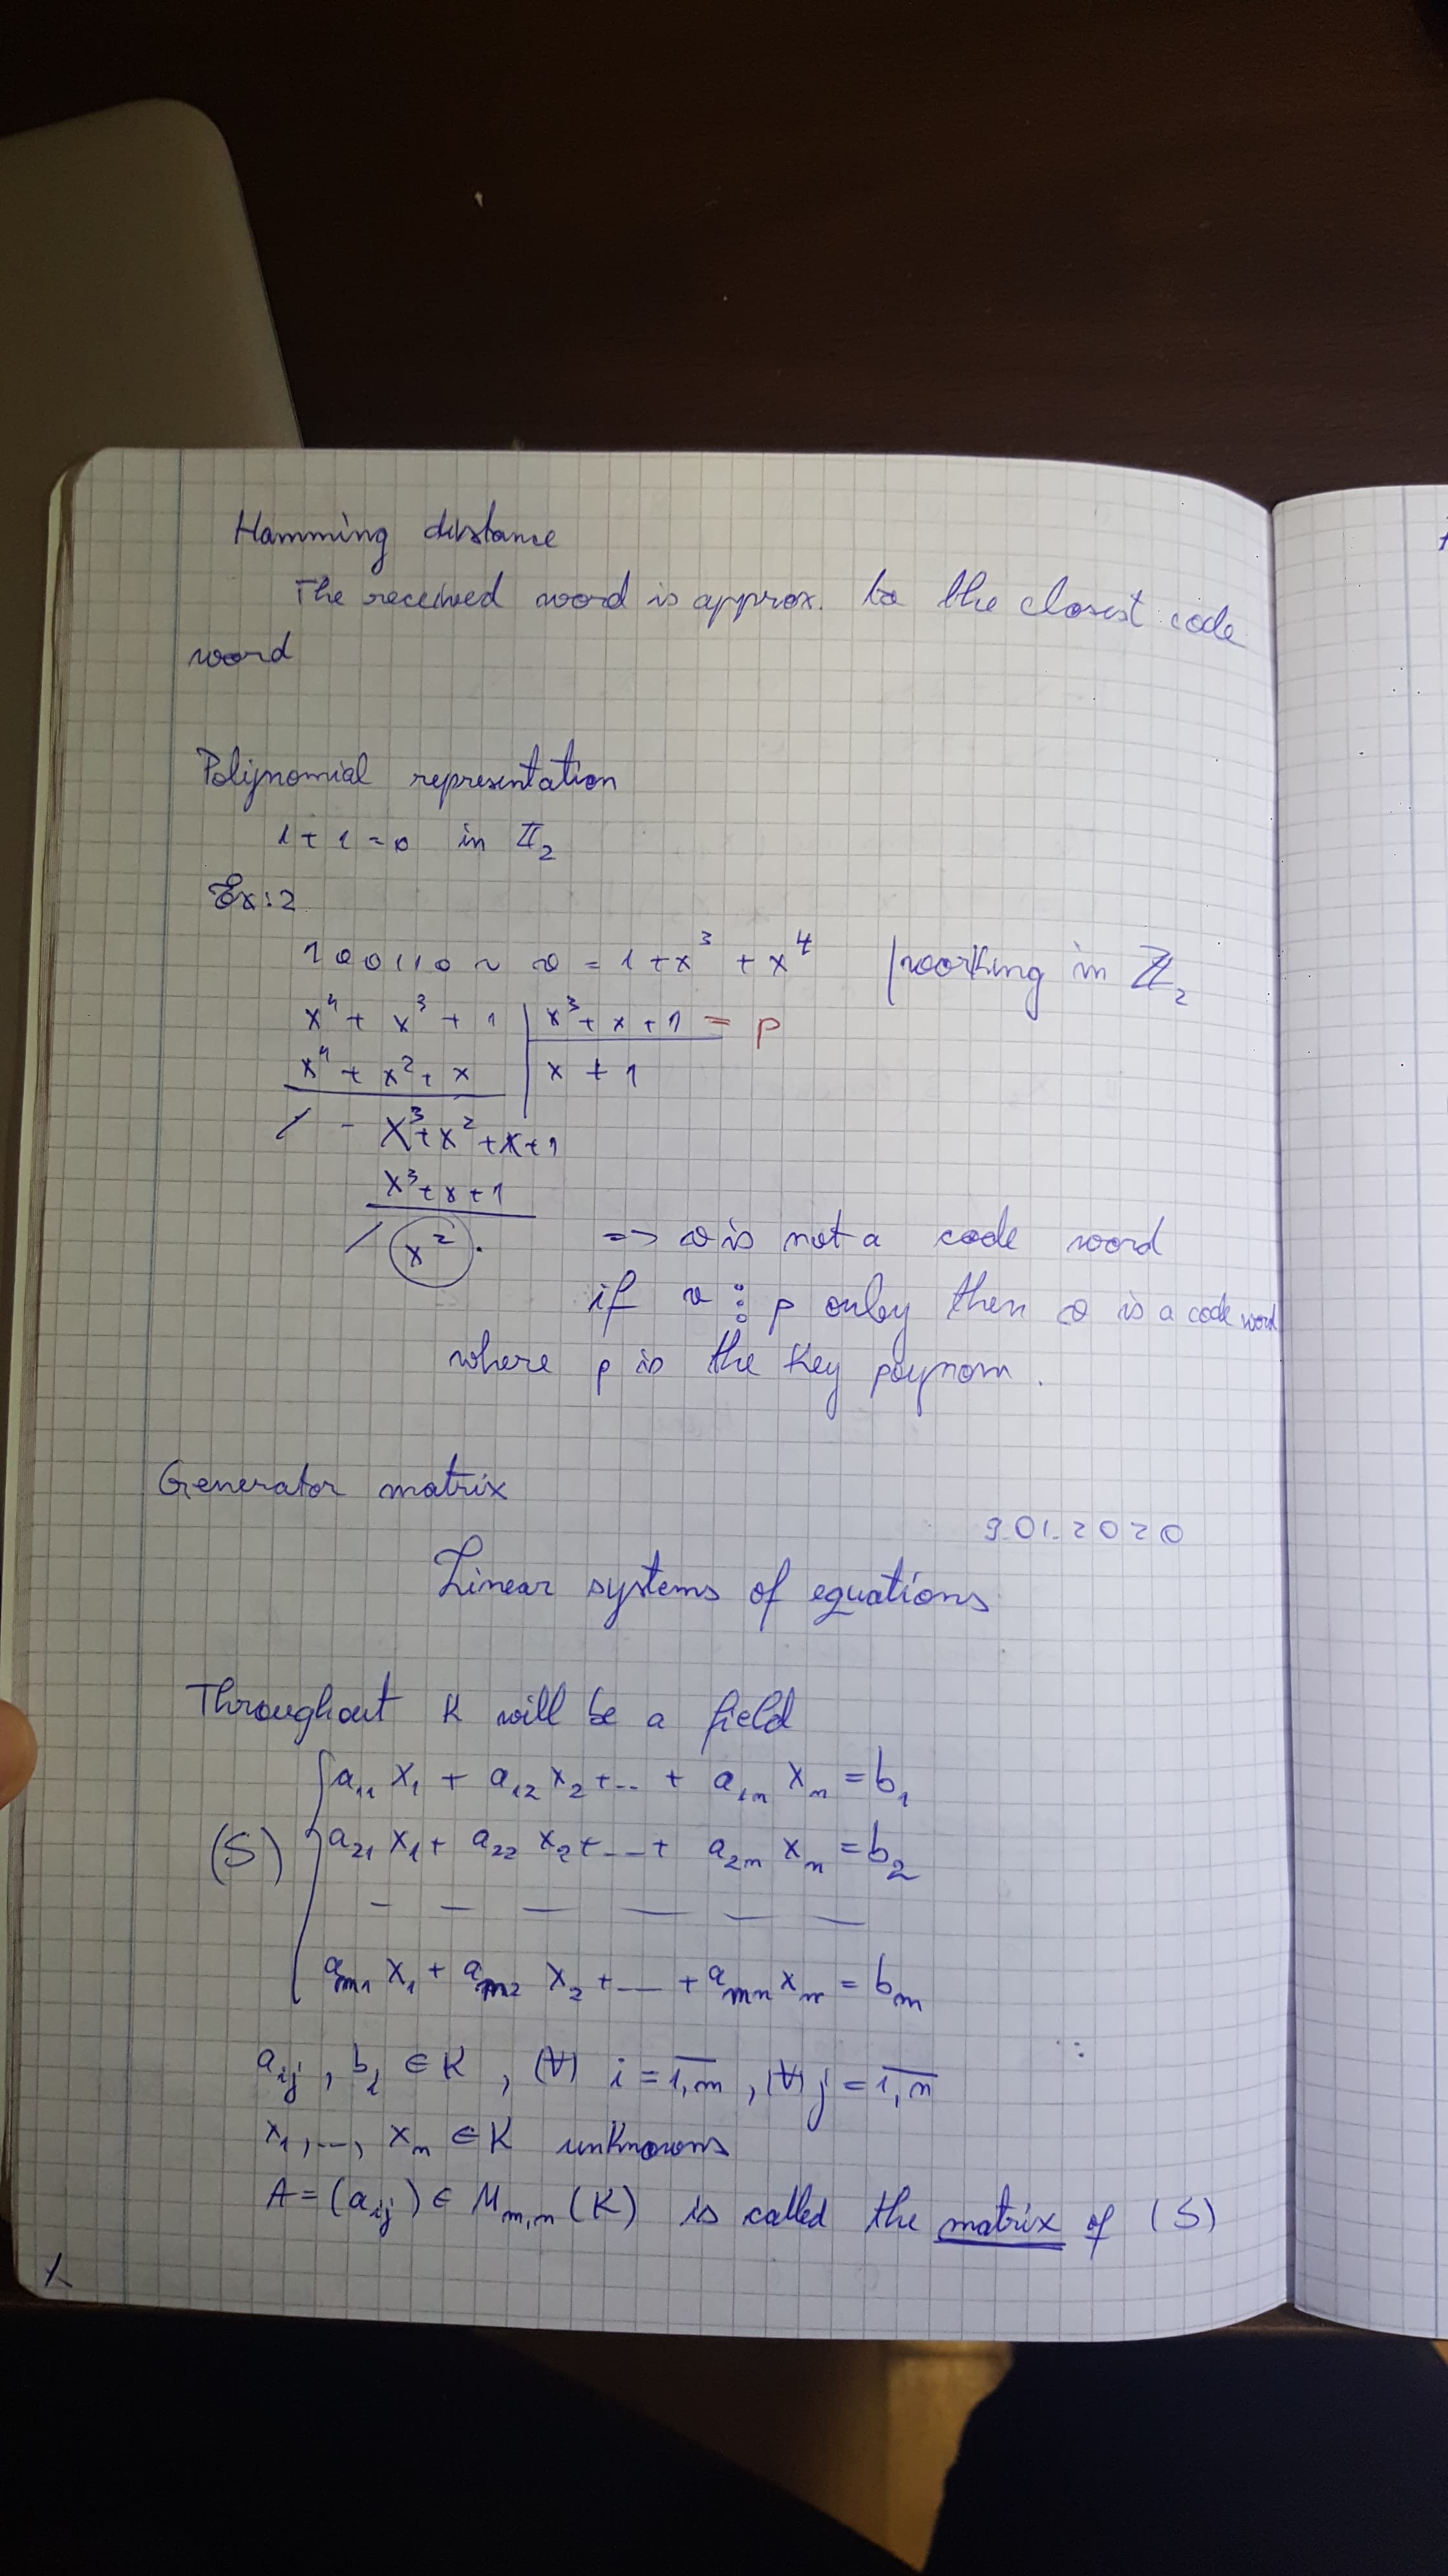 Hamming distance
The received word is approx. to the closest code
word
Polynomial representation
1 + 1 = 0 in ℤ₂
Ex: 2
100110 ~ v = 1 + x³ + x⁴ / working in ℤ₂
x⁴ + x³ + 1 | x³ + x + 1 = p
x⁴ + x² + x | x + 1
/ - x³ + x² + x + 1
x³ + x + 1
/ x² . => v is not a code word
if v ⋮ p onley then v is a code word
where p is the key poynom .
Generator matrix
9.01.2020
Linear systems of equations
Throughout K will be a field
a₁₁ x₁ + a₁₂ x₂ + ... + a₁ₙ xₙ = b₁
(S) { a₂₁ x₁ + a₂₂ x₂ + ... + a₂ₙ xₙ = b₂
— — — — — —
aₘ₁ x₁ + aₘ₂ x₂ + ... + aₘₙ xₙ = bₘ
aᵢⱼ , bᵢ ∈ K , (∀) i = 1,m , (∀) j = 1,n
x₁, ..., xₙ ∈ K unknowns
A = (aᵢⱼ) ∈ Mₘ,ₙ (K) is called the matrix of (S)